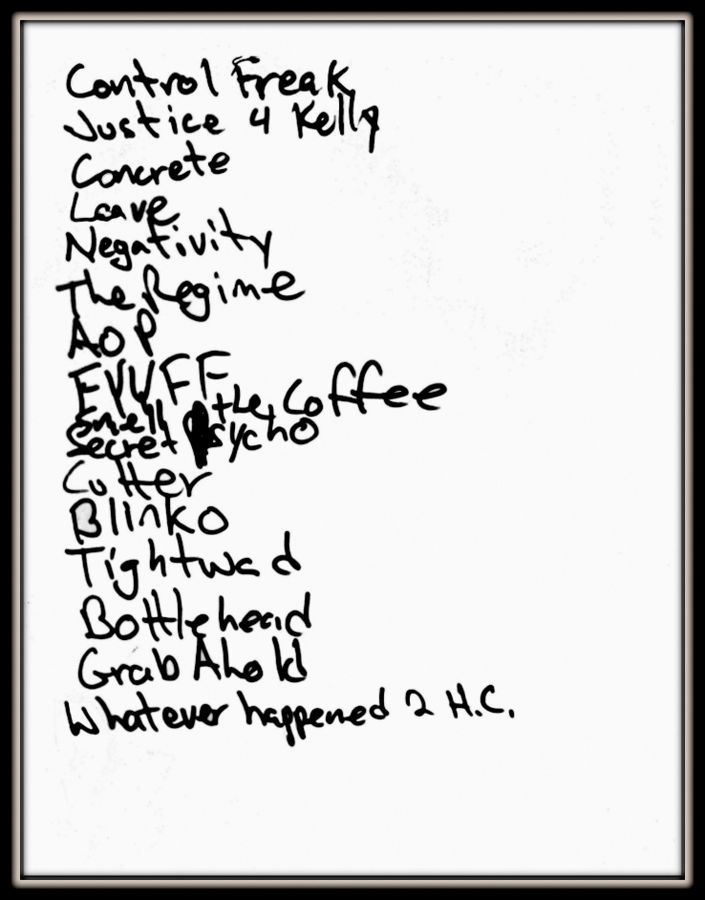 Control Freak
Justice 4 Kelly
Concrete
Leave
Negativity
The Regime
AOP
FYWFF
Smell the Coffee
Secret Psycho
Cutter
Blinko
Tightwad
Bottlehead
Grab Ahold
Whatever happened 2 H.C.